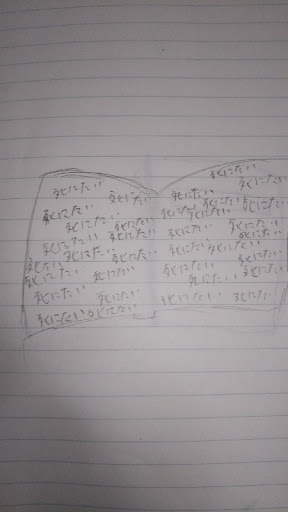 死にたい 死にたい
死にたい
死にたい 死にたい
死にたい 死にたい
死にたい 死にたい
死にたい 死にたい
死にたい 死にたい
死にたい 死にたい
死にたい 死にたい
死にたい
死にたい 死にたい
死にたい 死にたい 死にたい
死にたい 死にたい
死にたい 死にたい
死にたい 死にたい
死にたい 死にたい
死にたい 死にたい
死にたい 死にたい